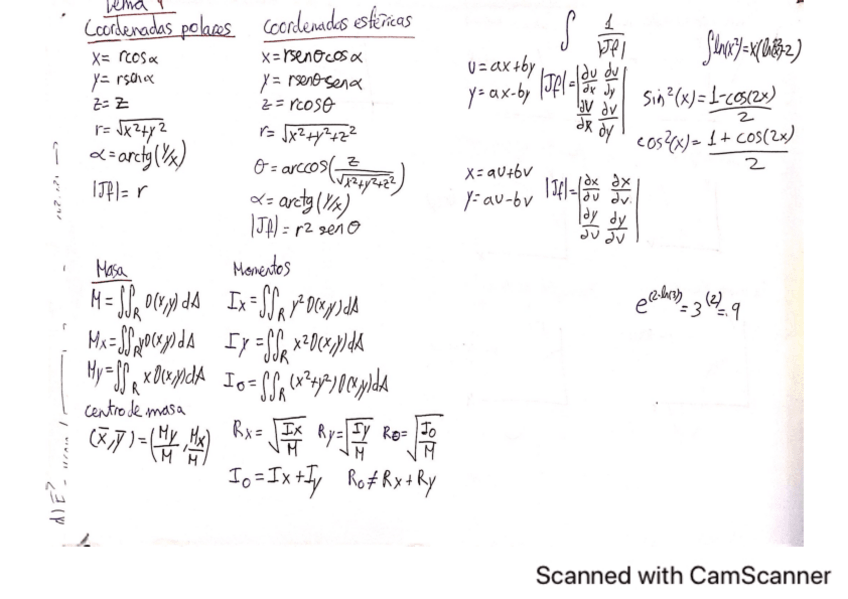 Tema 4
Coordenadas polares
x= rcosα
y= rsenα
z= z
r= √x²+y²
α=arctg(y/x)
|Jf|= r
Coordenadas esféricas
x=rsenθcosα
y= rsenθsenα
z= rcosθ
r= √x²+y²+z²
θ=arccos(z/√x²+y²+z²)
α=arctg(y/x)
|Jf|= r² senθ
∫ 1/|Jf|
u=ax+by
y=ax-by
|Jf|=|∂u/∂x ∂u/∂y
∂v/∂x ∂v/∂y|
sin²(x)=1-cos(2x)/2
cos²(x)=1+cos(2x)/2
x=au+bv
y=au-bv
|Jf|=|∂x/∂u ∂x/∂v
∂y/∂u ∂y/∂v|
e^(2·ln(3))=3^(2)=9
Masa
M=∬R D(x,y)dA
Mx=∬R yD(x,y)dA
My=∬R xD(x,y)dA
centro de masa
(x̄,ȳ)=(My/M, Mx/M)
Momentos
Ix=∬R y²D(x,y)dA
Iy=∬R x²D(x,y)dA
I₀=∬R (x²+y²)D(x,y)dA
Rx=√Ix/M Ry=√Iy/M R₀=√I₀/M
I₀=Ix+Iy R₀≠Rx+Ry
Scanned with CamScanner